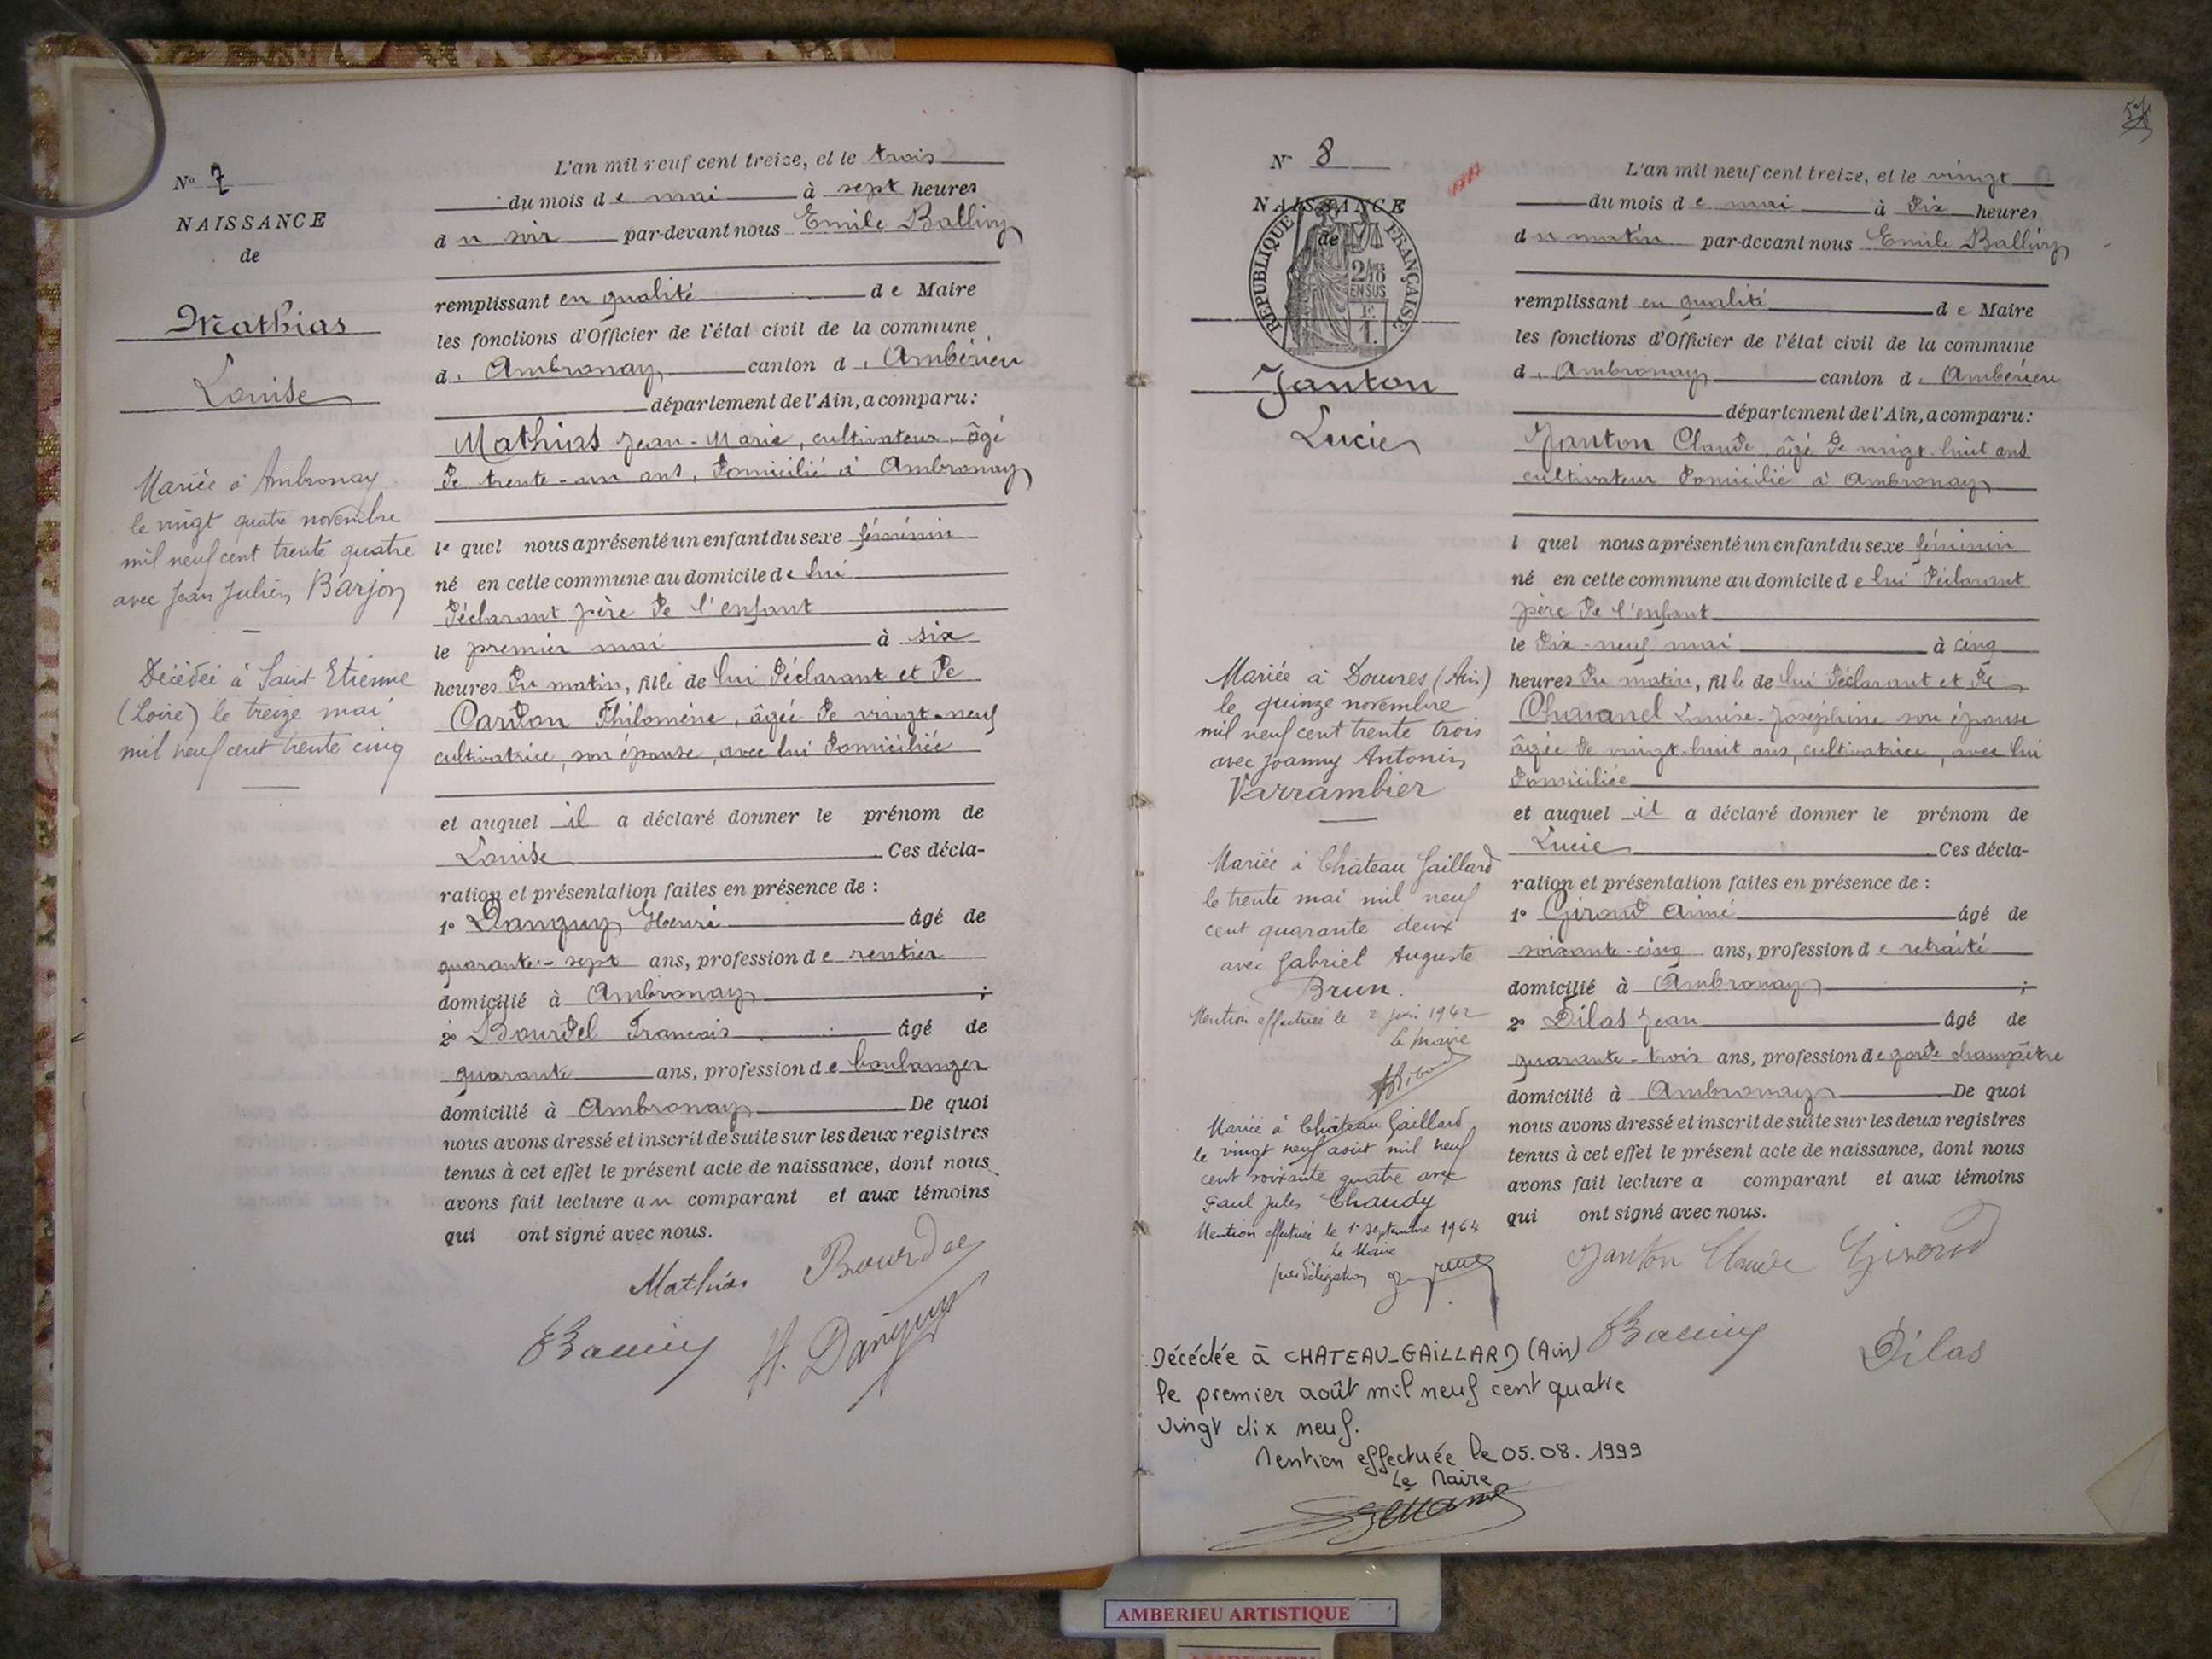 N° 7
NAISSANCE
de
Mathias
Louise
Mariée à Ambronay
le vingt quatre novembre
mil neuf cent trente quatre
avec Jean Julien Barjon
Décédée à Saint Etienne
(Loire) le treize mai
mil neuf cent trente cinq
L'an mil neuf cent treize, et le trois
du mois de mai à sept heures
du soir par-devant nous Emile Ballivy
remplissant en qualité de Maire
les fonctions d'Officier de l'état civil de la commune
d' Ambronay canton d' Ambérieu
département de l'Ain, a comparu:
Mathias Jean-Marie, cultivateur, âgé
de trente-un ans, domicilié à Ambronay
lequel nous a présenté un enfant du sexe féminin
né en cette commune au domicile de lui
déclarant père de l'enfant
le premier mai à six
heures du matin, fille de lui déclarant et de
Cardon Philomène, âgée de vingt-neuf
cultivatrice, son épouse, avec lui domiciliée
et auquel il a déclaré donner le prénom de
Louise Ces décla-
ration et présentation faites en présence de :
1° Danguy Henri âgé de
quarante-sept ans, profession de rentier
domicilié à Ambronay ;
2° Bourdel Francois âgé de
quarante ans, profession de boulanger
domicilié à Ambronay De quoi
nous avons dressé et inscrit de suite sur les deux registres
tenus à cet effet le présent acte de naissance, dont nous
avons fait lecture au comparant et aux témoins
qui ont signé avec nous.
Mathias Bourdel
EBallivy H. Danguy
N° 8
NAISSANCE
de
RÉPUBLIQUE FRANÇAISE
2/10
EN SUS
F.
1.
Janton
Lucie
Mariée à Douvres (Ain)
le quinze novembre
mil neuf cent trente trois
avec Joanny Antonin
Varrambier
Mariée à Château Gaillard
le trente mai mil neuf
cent quarante deux
avec Gabriel Auguste
Brun.
Mention effectuée le 2 juin 1942
Le Maire
Mariée à Château Gaillard
le vingt neuf août mil neuf
cent soixante quatre avec
Paul Jules Chaudy
Mention effectuée le 1er septembre 1964
Le Maire
par délégation
Décédée à CHATEAU-GAILLARD (Ain)
le premier août mil neuf cent quatre
vingt dix neuf.
Mention effectuée le 05.08.1999
Le Maire
L'an mil neuf cent treize, et le vingt
du mois de mai à dix heures
du matin par-devant nous Emile Ballivy
remplissant en qualité de Maire
les fonctions d'Officier de l'état civil de la commune
d' Ambronay canton d' Ambérieu
département de l'Ain, a comparu:
Janton Claude, âgé de vingt-huit ans
cultivateur domicilié à Ambronay
l quel nous a présenté un enfant du sexe féminin
né en cette commune au domicile de lui déclarant
père de l'enfant
le dix-neuf mai à cinq
heures du matin, fille de lui déclarant et de
Chavanel Louise-Joséphine son épouse
âgée de vingt-huit ans, cultivatrice, avec lui
domiciliée
et auquel il a déclaré donner le prénom de
Lucie Ces décla-
ration et présentation faites en présence de :
1° Giroud Aimé âgé de
soixante-cinq ans, profession de retraité
domicilié à Ambronay ;
2° Dilas Jean âgé de
quarante-trois ans, profession de garde champêtre
domicilié à Ambronay De quoi
nous avons dressé et inscrit de suite sur les deux registres
tenus à cet effet le présent acte de naissance, dont nous
avons fait lecture a comparant et aux témoins
qui ont signé avec nous.
Janton Claude Giroud
Ballivy Dilas
AMBERIEU ARTISTIQUE